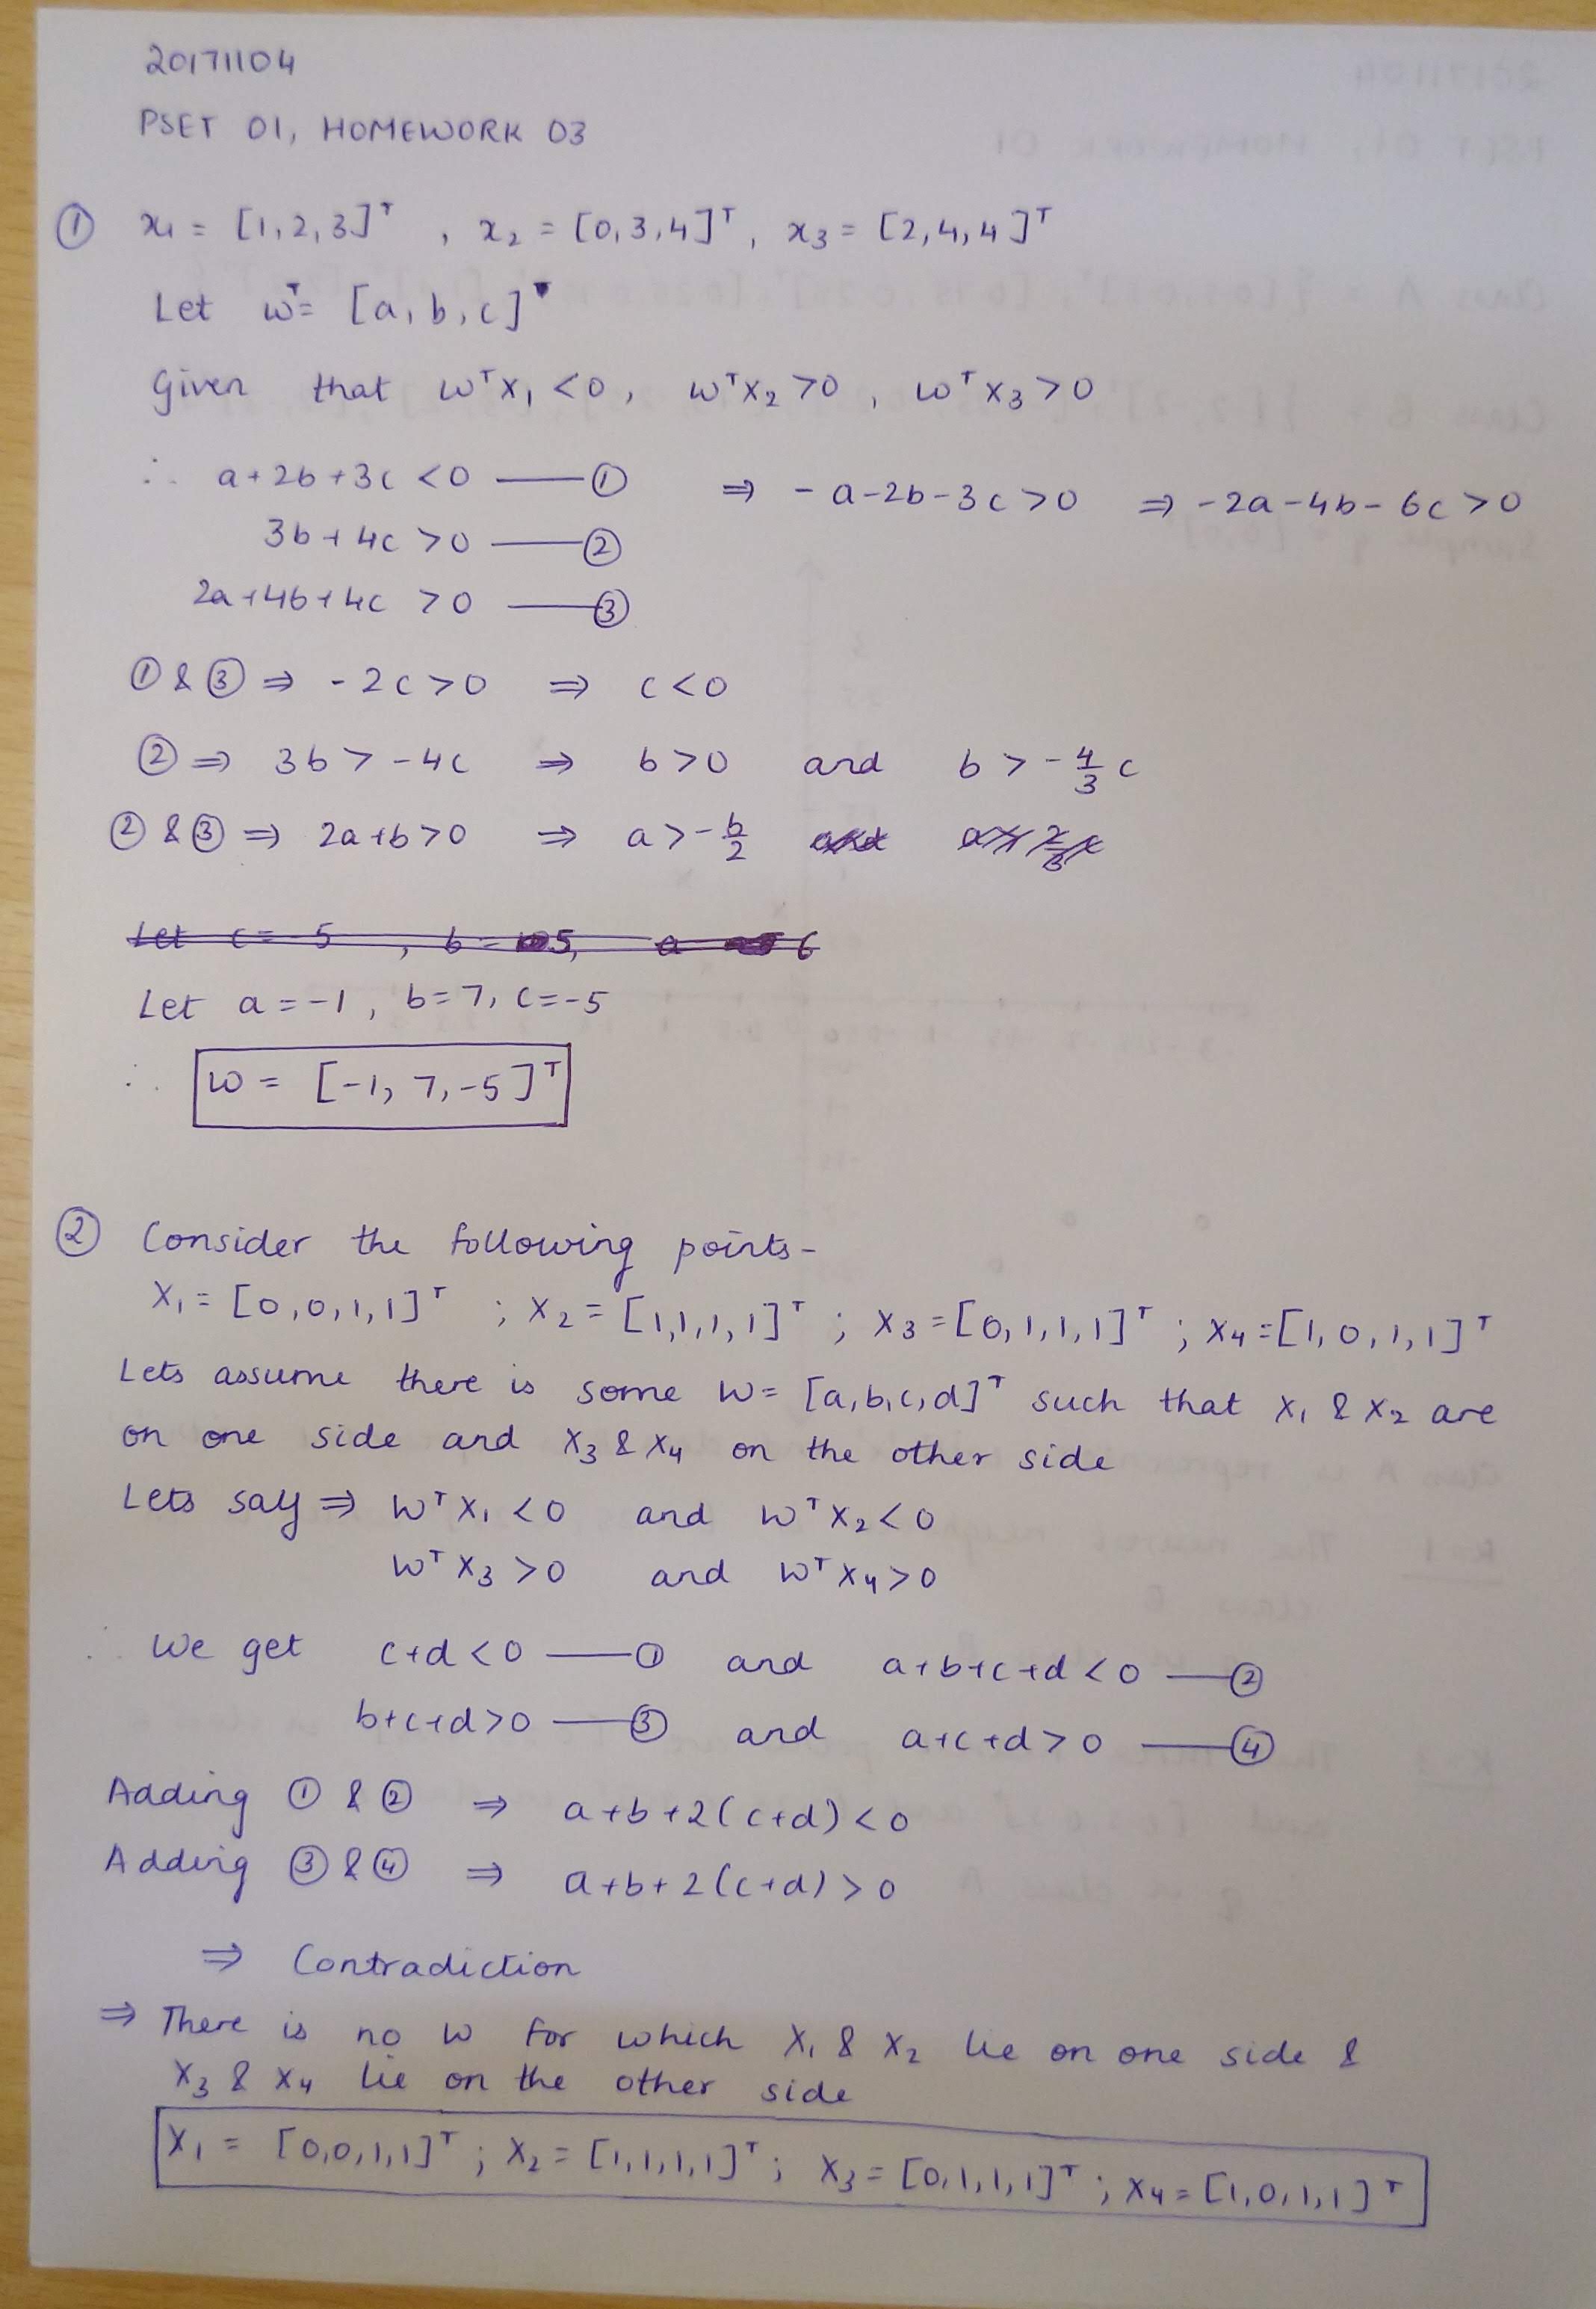 20171104
PSET 01, HOMEWORK 03
① x₁ = [1,2,3]ᵀ , x₂ = [0,3,4]ᵀ, x₃ = [2,4,4]ᵀ
Let wᵀ= [a,b,c]
Given that wᵀx₁ <0, wᵀx₂ >0, wᵀx₃ >0
∴ a+2b+3c <0 —① ⇒ -a-2b-3c>0 ⇒ -2a-4b-6c>0
3b+4c >0 —②
2a+4b+4c >0 —③
① & ③ ⇒ -2c>0 ⇒ c<0
② ⇒ 3b > -4c ⇒ b>0 and b > -4/3 c
② & ③ ⇒ 2a+b>0 ⇒ a>-b/2
Let a=-1, b=7, c=-5
∴ w = [-1, 7,-5]ᵀ
② Consider the following points-
X₁= [0,0,1,1]ᵀ ; X₂= [1,1,1,1]ᵀ ; X₃=[0,1,1,1]ᵀ ; X₄=[1,0,1,1]ᵀ
Lets assume there is some w= [a,b,c,d]ᵀ such that X₁ & X₂ are
on one side and X₃ & X₄ on the other side
Lets say ⇒ wᵀX₁ <0 and wᵀX₂<0
wᵀX₃ >0 and wᵀX₄>0
∴ We get c+d<0 —① and a+b+c+d<0 —②
b+c+d>0 —③ and a+c+d>0 —④
Adding ① & ② ⇒ a+b+2(c+d)<0
Adding ③ & ④ ⇒ a+b+2(c+d)>0
⇒ Contradiction
⇒ There is no w for which X₁ & X₂ lie on one side &
X₃ & X₄ lie on the other side
X₁ = [0,0,1,1]ᵀ ; X₂= [1,1,1,1]ᵀ ; X₃=[0,1,1,1]ᵀ ; X₄=[1,0,1,1]ᵀ